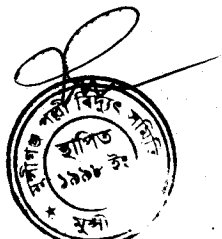 মুন্সীগঞ্জ পল্লী বিদ্যুৎ সমিতি
স্থাপিত
১৯৯৮ ইং
মুন্সী